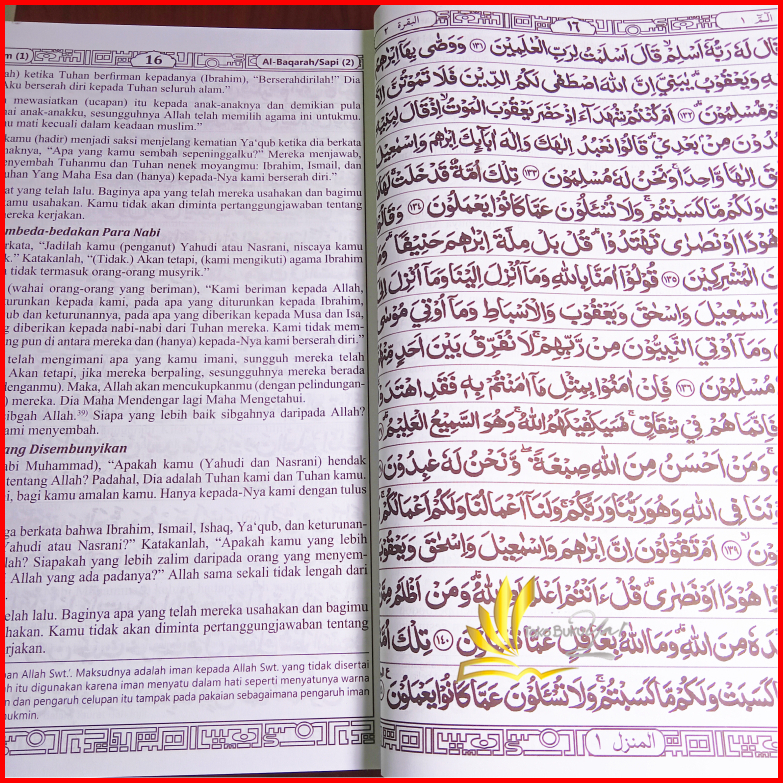 m (1)
16
Al-Baqarah/Sapi (2)
ah) ketika Tuhan berfirman kepadanya (Ibrahim), “Berserahdirilah!” Dia
Aku berserah diri kepada Tuhan seluruh alam.”
mewasiatkan (ucapan) itu kepada anak-anaknya dan demikian pula
ai anak-anakku, sesungguhnya Allah telah memilih agama ini untukmu.
u mati kecuali dalam keadaan muslim.”
kamu (hadir) menjadi saksi menjelang kematian Ya‘qub ketika dia berkata
aknya, “Apa yang kamu sembah sepeninggalku?” Mereka menjawab,
enyembah Tuhanmu dan Tuhan nenek moyangmu: Ibrahim, Ismail, dan
uhan Yang Maha Esa dan (hanya) kepada-Nya kami berserah diri.”
at yang telah lalu. Baginya apa yang telah mereka usahakan dan bagimu
u usahakan. Kamu tidak akan diminta pertanggungjawaban tentang
ereka kerjakan.
mbeda-bedakan Para Nabi
rkata, “Jadilah kamu (penganut) Yahudi atau Nasrani, niscaya kamu
k.” Katakanlah, “(Tidak.) Akan tetapi, (kami mengikuti) agama Ibrahim
tidak termasuk orang-orang musyrik.”
(wahai orang-orang yang beriman), “Kami beriman kepada Allah,
turunkan kepada kami, pada apa yang diturunkan kepada Ibrahim,
ub dan keturunannya, pada apa yang diberikan kepada Musa dan Isa,
g diberikan kepada nabi-nabi dari Tuhan mereka. Kami tidak mem-
ng pun di antara mereka dan (hanya) kepada-Nya kami berserah diri.”
telah mengimani apa yang kamu imani, sungguh mereka telah
Akan tetapi, jika mereka berpaling, sesungguhnya mereka berada
denganmu). Maka, Allah akan mencukupkanmu (dengan pelindungan-
) mereka. Dia Maha Mendengar lagi Maha Mengetahui.
ibgah Allah.³⁹⁾ Siapa yang lebih baik sibgahnya daripada Allah?
ami menyembah.
ang Disembunyikan
abi Muhammad), “Apakah kamu (Yahudi dan Nasrani) hendak
tentang Allah? Padahal, Dia adalah Tuhan kami dan Tuhan kamu.
i, bagi kamu amalan kamu. Hanya kepada-Nya kami dengan tulus
ga berkata bahwa Ibrahim, Ismail, Ishaq, Ya‘qub, dan keturunan-
Yahudi atau Nasrani?” Katakanlah, “Apakah kamu yang lebih
lah? Siapakah yang lebih zalim daripada orang yang menyem-
Allah yang ada padanya?” Allah sama sekali tidak lengah dari
.
elah lalu. Baginya apa yang telah mereka usahakan dan bagimu
ahakan. Kamu tidak akan diminta pertanggungjawaban tentang
rjakan.
an Allah Swt.’. Maksudnya adalah iman kepada Allah Swt. yang tidak disertai
h itu digunakan karena iman menyatu dalam hati seperti menyatunya warna
n dan pengaruh celupan itu tampak pada pakaian sebagaimana pengaruh iman
ukmin.
البقرة ٢
١٦
١
قَالَ لَهٗ رَبُّهٗٓ اَسْلِمْۙ قَالَ اَسْلَمْتُ لِرَبِّ الْعٰلَمِيْنَ ۝١٣١ وَوَصّٰى بِهَآ اِبْرٰهٖمُ
وَيَعْقُوْبُۗ يٰبَنِيَّ اِنَّ اللّٰهَ اصْطَفٰى لَكُمُ الدِّيْنَ فَلَا تَمُوْتُنَّ
مُّسْلِمُوْنَ ۝١٣٢ اَمْ كُنْتُمْ شُهَدَاۤءَ اِذْ حَضَرَ يَعْقُوْبَ الْمَوْتُۙ اِذْ قَالَ لِبَنِيْهِ
مِنْۢ بَعْدِيْۗ قَالُوْا نَعْبُدُ اِلٰهَكَ وَاِلٰهَ اٰبَاۤىِٕكَ اِبْرٰهٖمَ وَاِسْمٰعِيْلَ
اِلٰهًا وَّاحِدًاۚ وَنَحْنُ لَهٗ مُسْلِمُوْنَ ۝١٣٣ تِلْكَ اُمَّةٌ قَدْ خَلَتْۚ لَهَا
وَلَكُمْ مَّا كَسَبْتُمْۚ وَلَا تُسْـَٔلُوْنَ عَمَّا كَانُوْا يَعْمَلُوْنَ ۝١٣٤ وَقَالُوْا
هُوْدًا اَوْ نَصٰرٰى تَهْتَدُوْاۗ قُلْ بَلْ مِلَّةَ اِبْرٰهٖمَ حَنِيْفًاۗ
الْمُشْرِكِيْنَ ۝١٣٥ قُوْلُوْٓا اٰمَنَّا بِاللّٰهِ وَمَآ اُنْزِلَ اِلَيْنَا وَمَآ اُنْزِلَ
اِسْمٰعِيْلَ وَاِسْحٰقَ وَيَعْقُوْبَ وَالْاَسْبَاطِ وَمَآ اُوْتِيَ مُوْسٰى
وَمَآ اُوْتِيَ النَّبِيُّوْنَ مِنْ رَّبِّهِمْۚ لَا نُفَرِّقُ بَيْنَ اَحَدٍ مِّنْهُمْ
مُسْلِمُوْنَ ۝١٣٦ فَاِنْ اٰمَنُوْا بِمِثْلِ مَآ اٰمَنْتُمْ بِهٖ فَقَدِ اهْتَدَوْا
فَاِنَّمَا هُمْ فِيْ شِقَاقٍۚ فَسَيَكْفِيْكَهُمُ اللّٰهُۚ وَهُوَ السَّمِيْعُ الْعَلِيْمُ
وَمَنْ اَحْسَنُ مِنَ اللّٰهِ صِبْغَةً ۖ وَّنَحْنُ لَهٗ عٰبِدُوْنَ
فِى اللّٰهِ وَهُوَ رَبُّنَا وَرَبُّكُمْۚ وَلَنَآ اَعْمَالُنَا وَلَكُمْ اَعْمَالُكُمْ
۝١٣٩ اَمْ تَقُوْلُوْنَ اِنَّ اِبْرٰهٖمَ وَاِسْمٰعِيْلَ وَاِسْحٰقَ وَيَعْقُوْبَ
هُوْدًا اَوْ نَصٰرٰىۗ قُلْ ءَاَنْتُمْ اَعْلَمُ اَمِ اللّٰهُۗ وَمَنْ اَظْلَمُ
مِنَ اللّٰهِۗ وَمَا اللّٰهُ بِغَافِلٍ عَمَّا تَعْمَلُوْنَ ۝١٤٠ تِلْكَ
كَسَبَتْ وَلَكُمْ مَّا كَسَبْتُمْۚ وَلَا تُسْـَٔلُوْنَ عَمَّا كَانُوْا يَعْمَلُوْنَ
المنزل ١